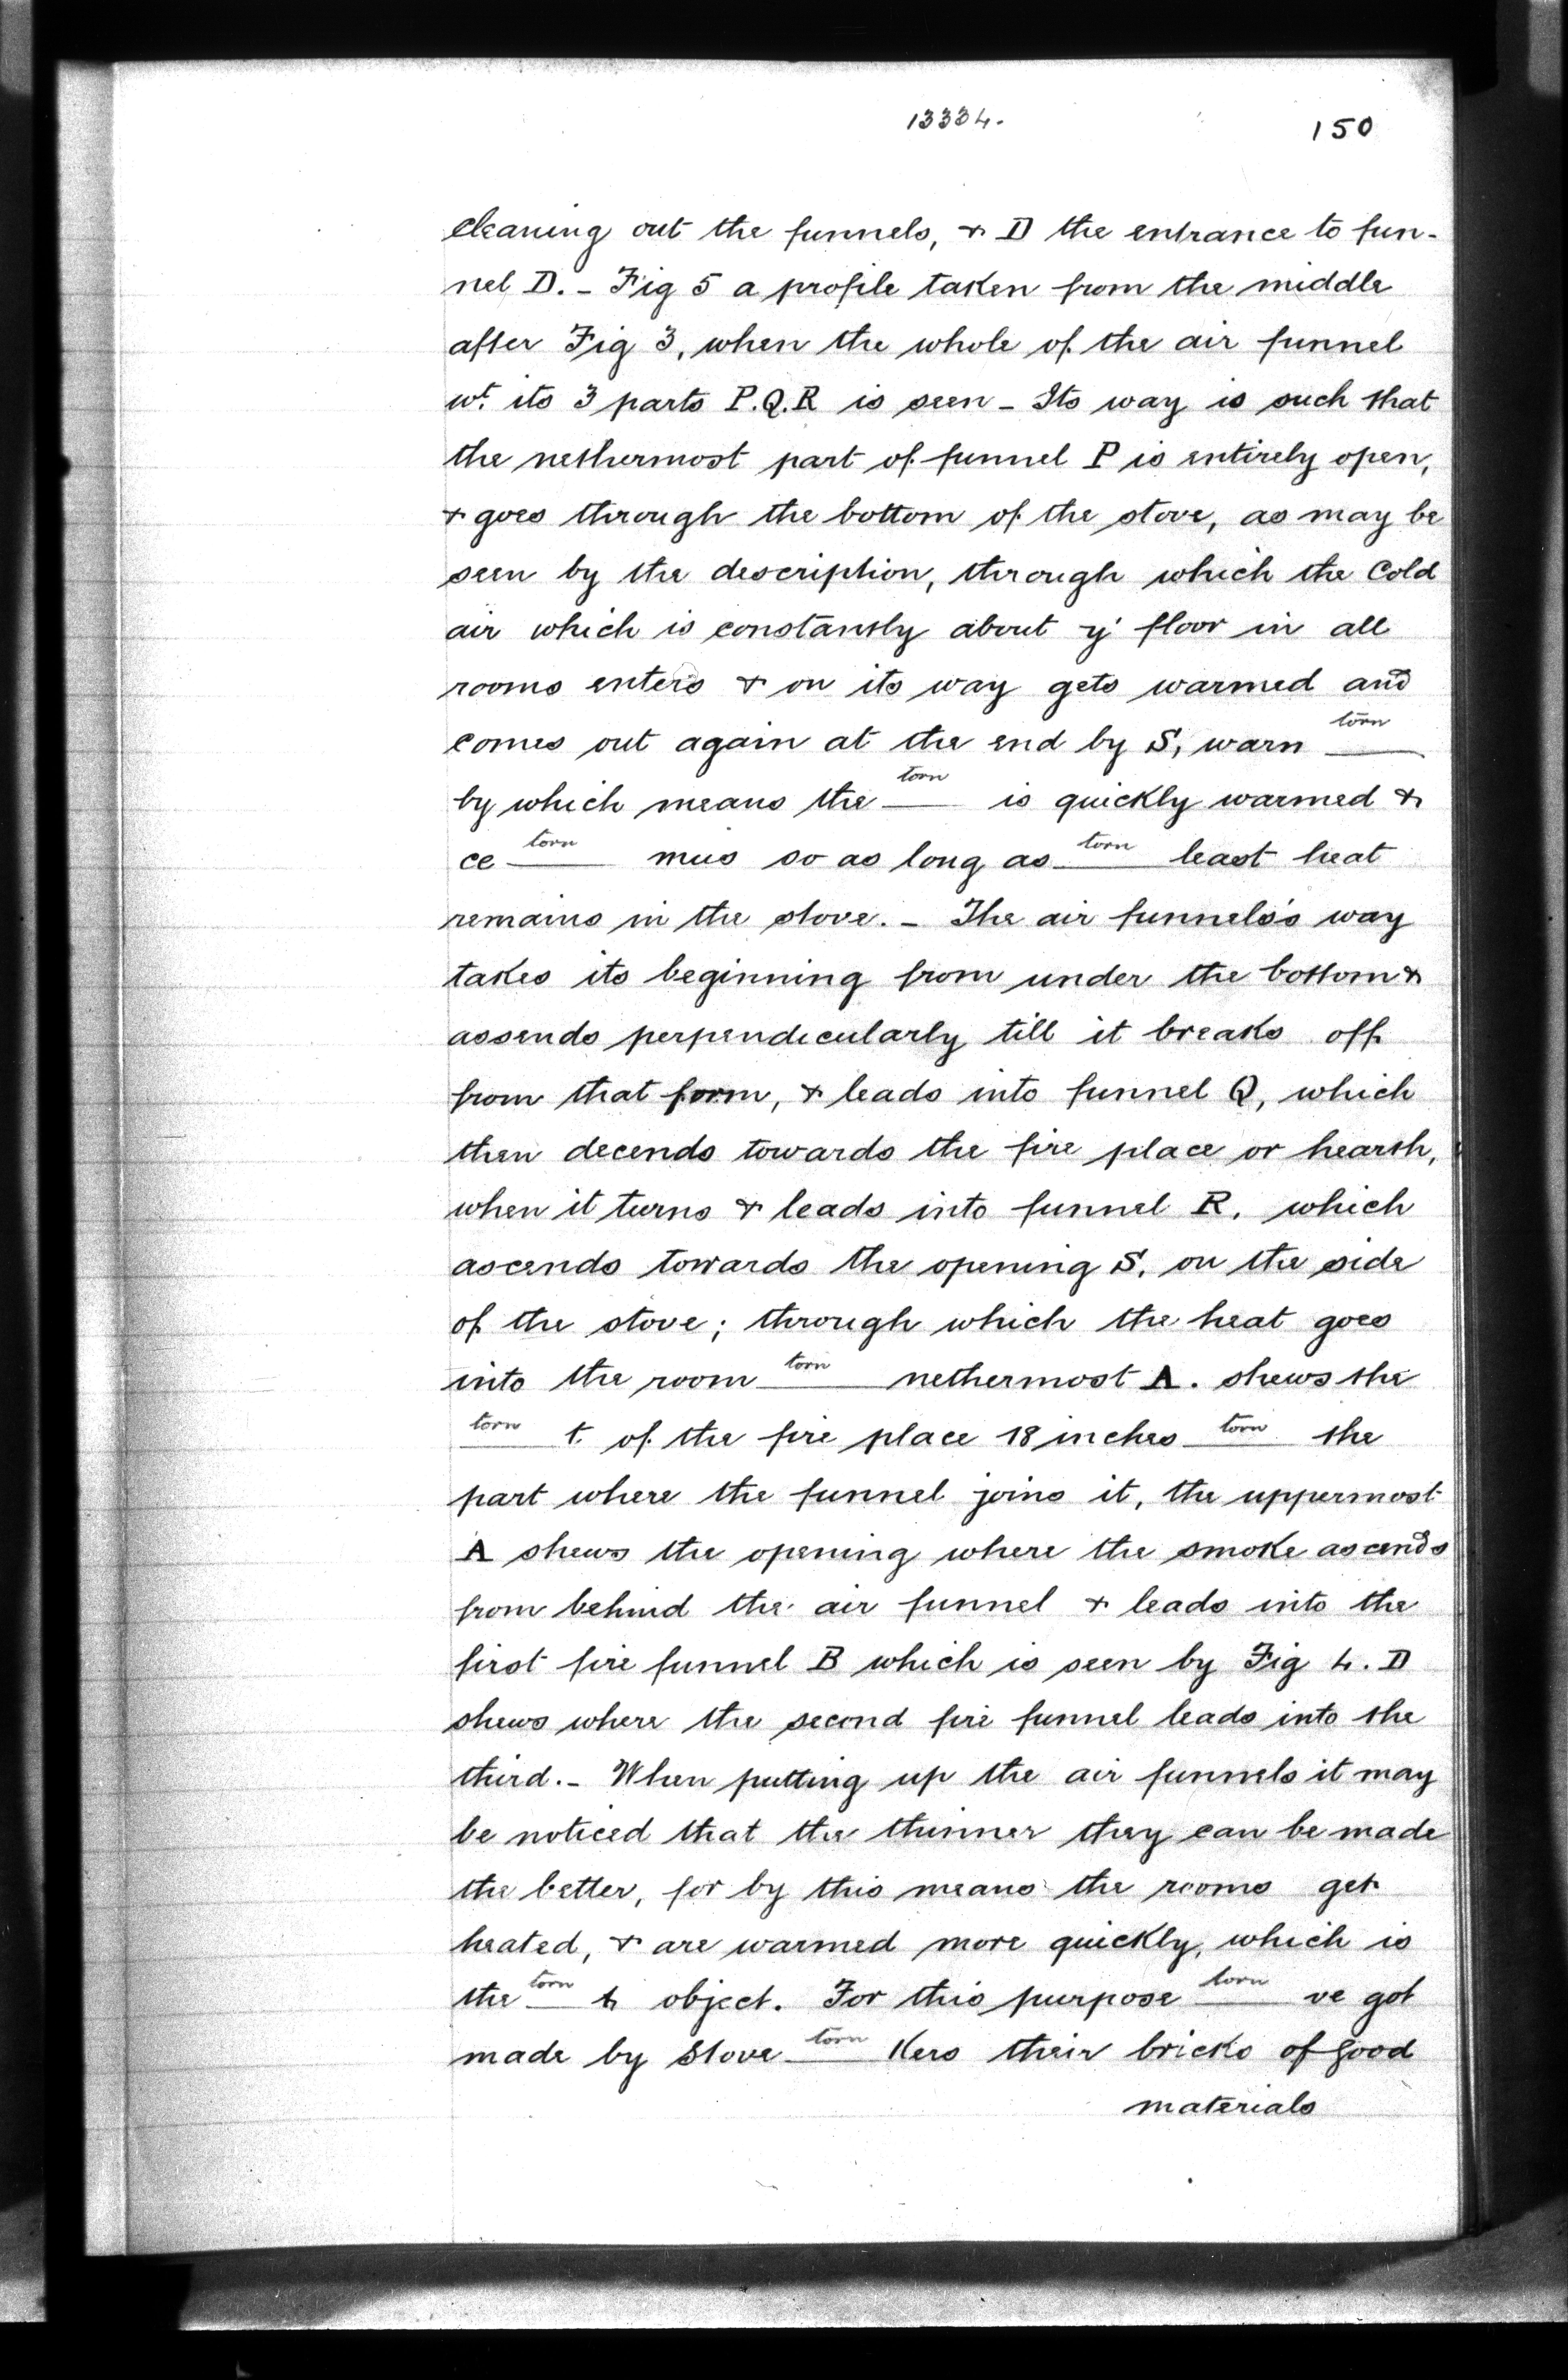 13334.
150
cleaning out the funnels, & D the entrance to fun-
nel D. - Fig 5 a profile taken from the middle
after Fig 3, when the whole of the air funnel
wt. its 3 parts P.Q.R is seen - Its way is such that
the nethermost part of funnel P is entirely open,
& goes through the bottom of the stove, as may be
seen by the description, through which the Cold
air which is constantly about ye floor in all
rooms enters & on its way gets warmed and
torn
comes out again at the end by S, warn ___
torn
by which means the ___ is quickly warmed &
torn torn
ce ___ mus so as long as ___ least heat
remains in the stove. - The air funnels's way
takes its beginning from under the bottom &
assends perpendicularly till it breaks off
from that form, & leads into funnel Q, which
then decends towards the fire place or hearth,
when it turns & leads into funnel R, which
ascends towards the opening S, on the side
of the stove; through which the heat goes
torn
into the room ___ nethermost A. shews the
torn torn
___ t. of the fire place 18 inches ___ the
part where the funnel joins it, the uppermost
A shews the opening where the smoke ascends
from behind the air funnel & leads into the
first fire funnel B which is seen by Fig 4. D
shews where the second fire funnel leads into the
third. - When putting up the air funnels it may
be noticed that the thinner they can be made
the better, for by this means the rooms get
heated, & are warmed more quickly, which is
torn torn
the ___ t object. For this purpose ___ ve got
torn
made by Stove ___ kers their bricks of good
materials